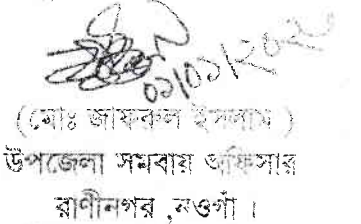 ০১/০১/২০২০
(মোঃ জাফরুল ইসলাম )
উপজেলা সমবায় অফিসার
রাণীনগর ,নওগাঁ ।